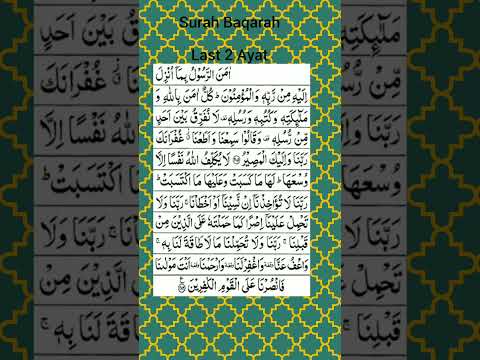 Surah Baqarah
Last 2 Ayat
اٰمَنَ الرَّسُوْلُ بِمَاۤ اُنْزِلَ
اِلَيْهِ مِنْ رَّبِّهٖ وَ الْمُؤْمِنُوْنَ ؕ كُلٌّ اٰمَنَ بِاللّٰهِ وَ
مَلٰٓىِٕكَتِهٖ وَ كُتُبِهٖ وَ رُسُلِهٖ ۫ لَا نُفَرِّقُ بَيْنَ اَحَدٍ
مِّنْ رُّسُلِهٖ ۫ وَ قَالُوْا سَمِعْنَا وَ اَطَعْنَا ٘ غُفْرَانَكَ
رَبَّنَا وَ اِلَيْكَ الْمَصِيْرُ ۝ لَا يُكَلِّفُ اللّٰهُ نَفْسًا اِلَّا
وُسْعَهَا ؕ لَهَا مَا كَسَبَتْ وَ عَلَيْهَا مَا اكْتَسَبَتْ ؕ
رَبَّنَا لَا تُؤَاخِذْنَاۤ اِنْ نَّسِيْنَاۤ اَوْ اَخْطَاْنَا ۚ رَبَّنَا وَ لَا
تَحْمِلْ عَلَيْنَاۤ اِصْرًا كَمَا حَمَلْتَهٗ عَلَى الَّذِيْنَ مِنْ
قَبْلِنَا ۚ رَبَّنَا وَ لَا تُحَمِّلْنَا مَا لَا طَاقَةَ لَنَا بِهٖ ۚ
وَ اعْفُ عَنَّا ۥ وَ اغْفِرْ لَنَا ۥ وَ ارْحَمْنَا ۥ اَنْتَ مَوْلٰىنَا
فَانْصُرْنَا عَلَى الْقَوْمِ الْكٰفِرِيْنَ ۝